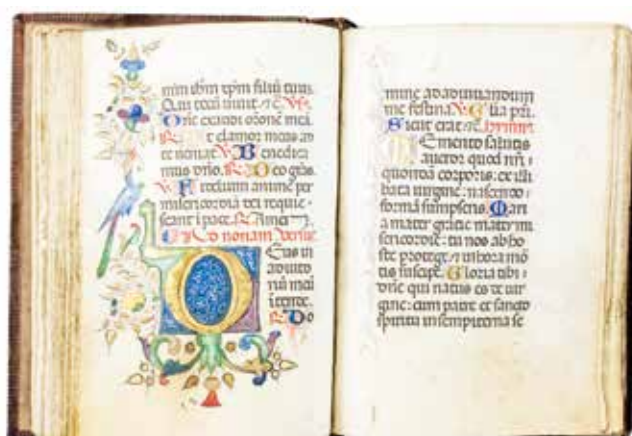 num ihm xpm filiū tuū.
Qui tecū uiuit ⁊c. Vs.
Dne exaudi oronē meā.
R. Et clamor meus ad
te ueniat. V. Benedica
mus dno. R. Deo gras.
V. Fidelium anime per
misericordiā dei requie
scant ī pace. R. Amen.
Ad nonam
Deus in
adiuto
riū meū
intende.
R. Do
mine ad adiuuandum
me festina. V. Glia pri.
Sicut erat ⁊c. hymnus
Memento salutis
auctor quod nri
quondā corporis: ex illi
bata uirgine: nascendo
formā sumpseris. Mari
a mater gratie mater mi
sericordie: tu nos ab ho
ste protege: et in hora mor
tis suscipe. Gloria tibi
dne qui natus es de uir
gine: cum patre et sancto
spiritu in sempiterna se